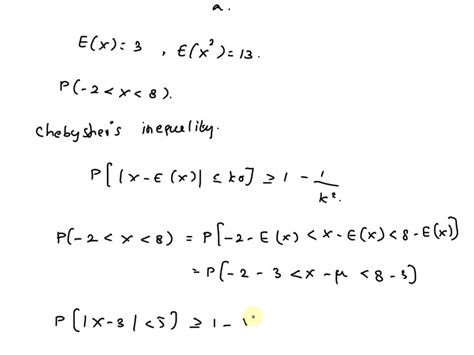 a.
E(x) = 3 , E(x²) = 13.
P(-2 < x < 8).
Chebysher's inequality.
P[|x - E(x)| ≤ kσ] ≥ 1 - 1/k².
P(-2 < x < 8) = P[-2 - E(x) < x - E(x) < 8 - E(x)]
= P[-2 - 3 < x - μ < 8 - 3]
P[|x - 3| < 5] ≥ 1 - 1